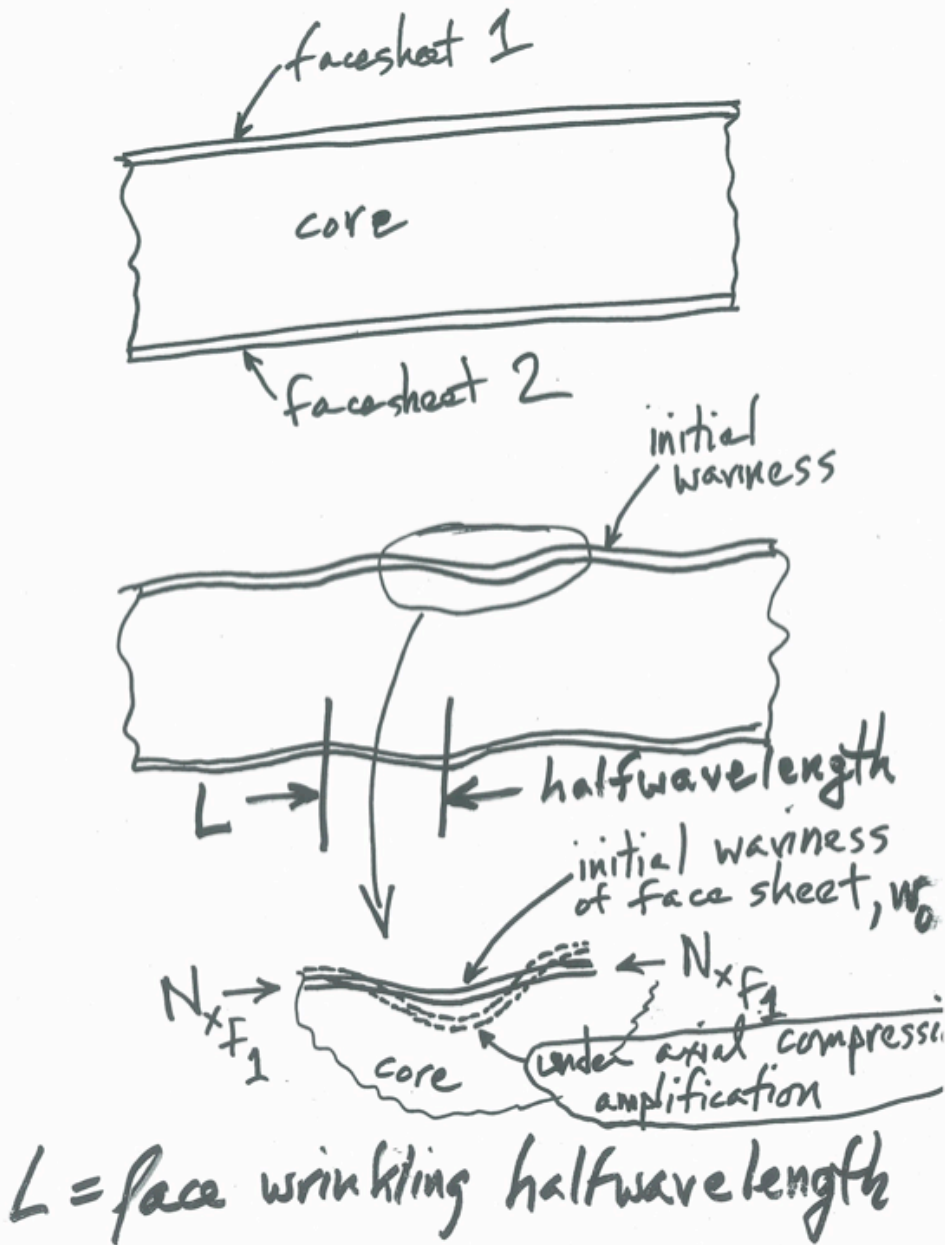 facesheet 1
core
facesheet 2
initial
waviness
L
halfwavelength
initial waviness
of face sheet, w₀
N x F 1
N x F 1
core
under axial compressi
amplification
L = face wrinkling halfwavelength